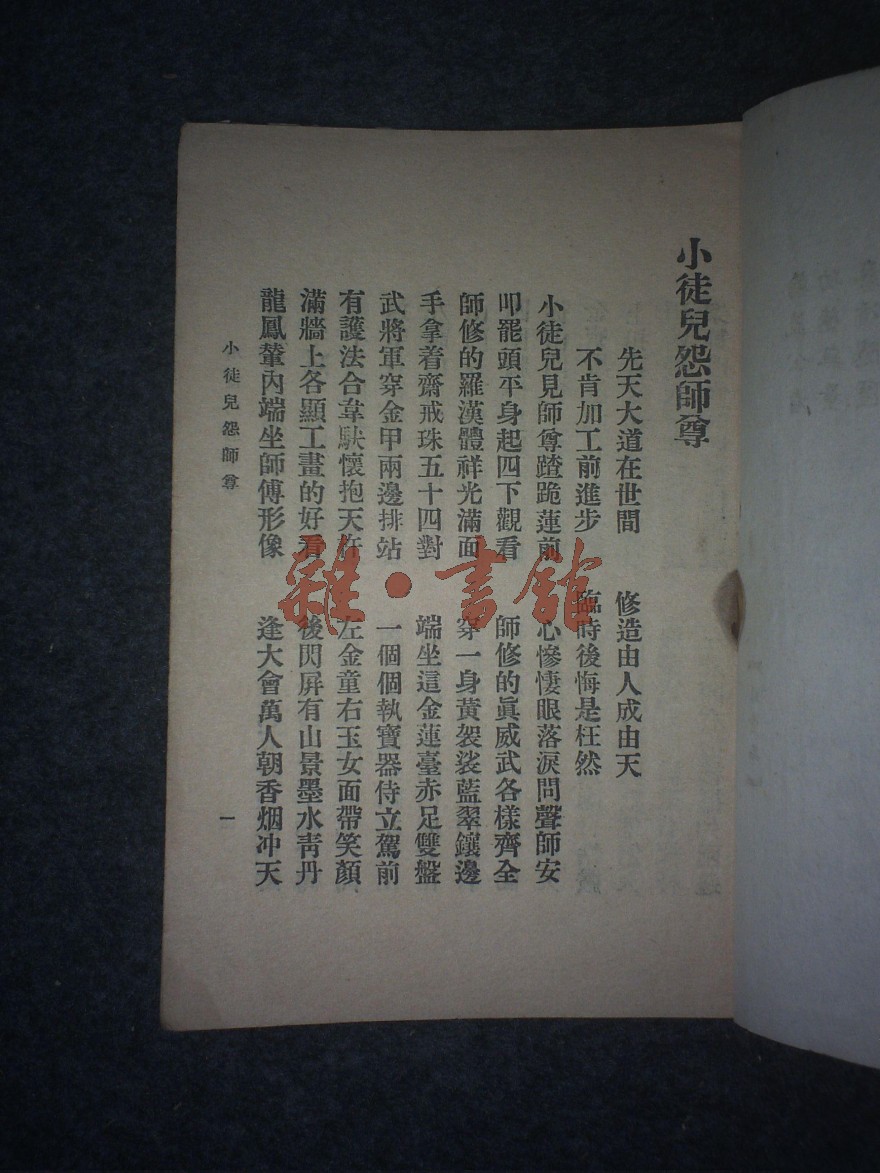 小徒兒怨師尊
先天大道在世間　修造由人成由天
不肯加工前進步　臨時後悔是枉然
小徒兒見師尊蹅跪蓮前　心慘悽眼落淚問聲師安
叩罷頭平身起四下觀看　師修的眞威武各樣齊全
師修的羅漢體祥光滿面　穿一身黃袈裟藍翠鑲邊
手拿着齋戒珠五十四對　端坐這金蓮臺赤足雙盤
武將軍穿金甲兩邊排站　一個個執寶器侍立駕前
有護法合韋馱懷抱天杵　左金童右玉女面帶笑顏
滿牆上各顯工畫的好看　後閃屏有山景墨水靑丹
龍鳳輦內端坐師傅形像　逢大會萬人朝香烟冲天
小徒兒怨師尊　一
雜·書館